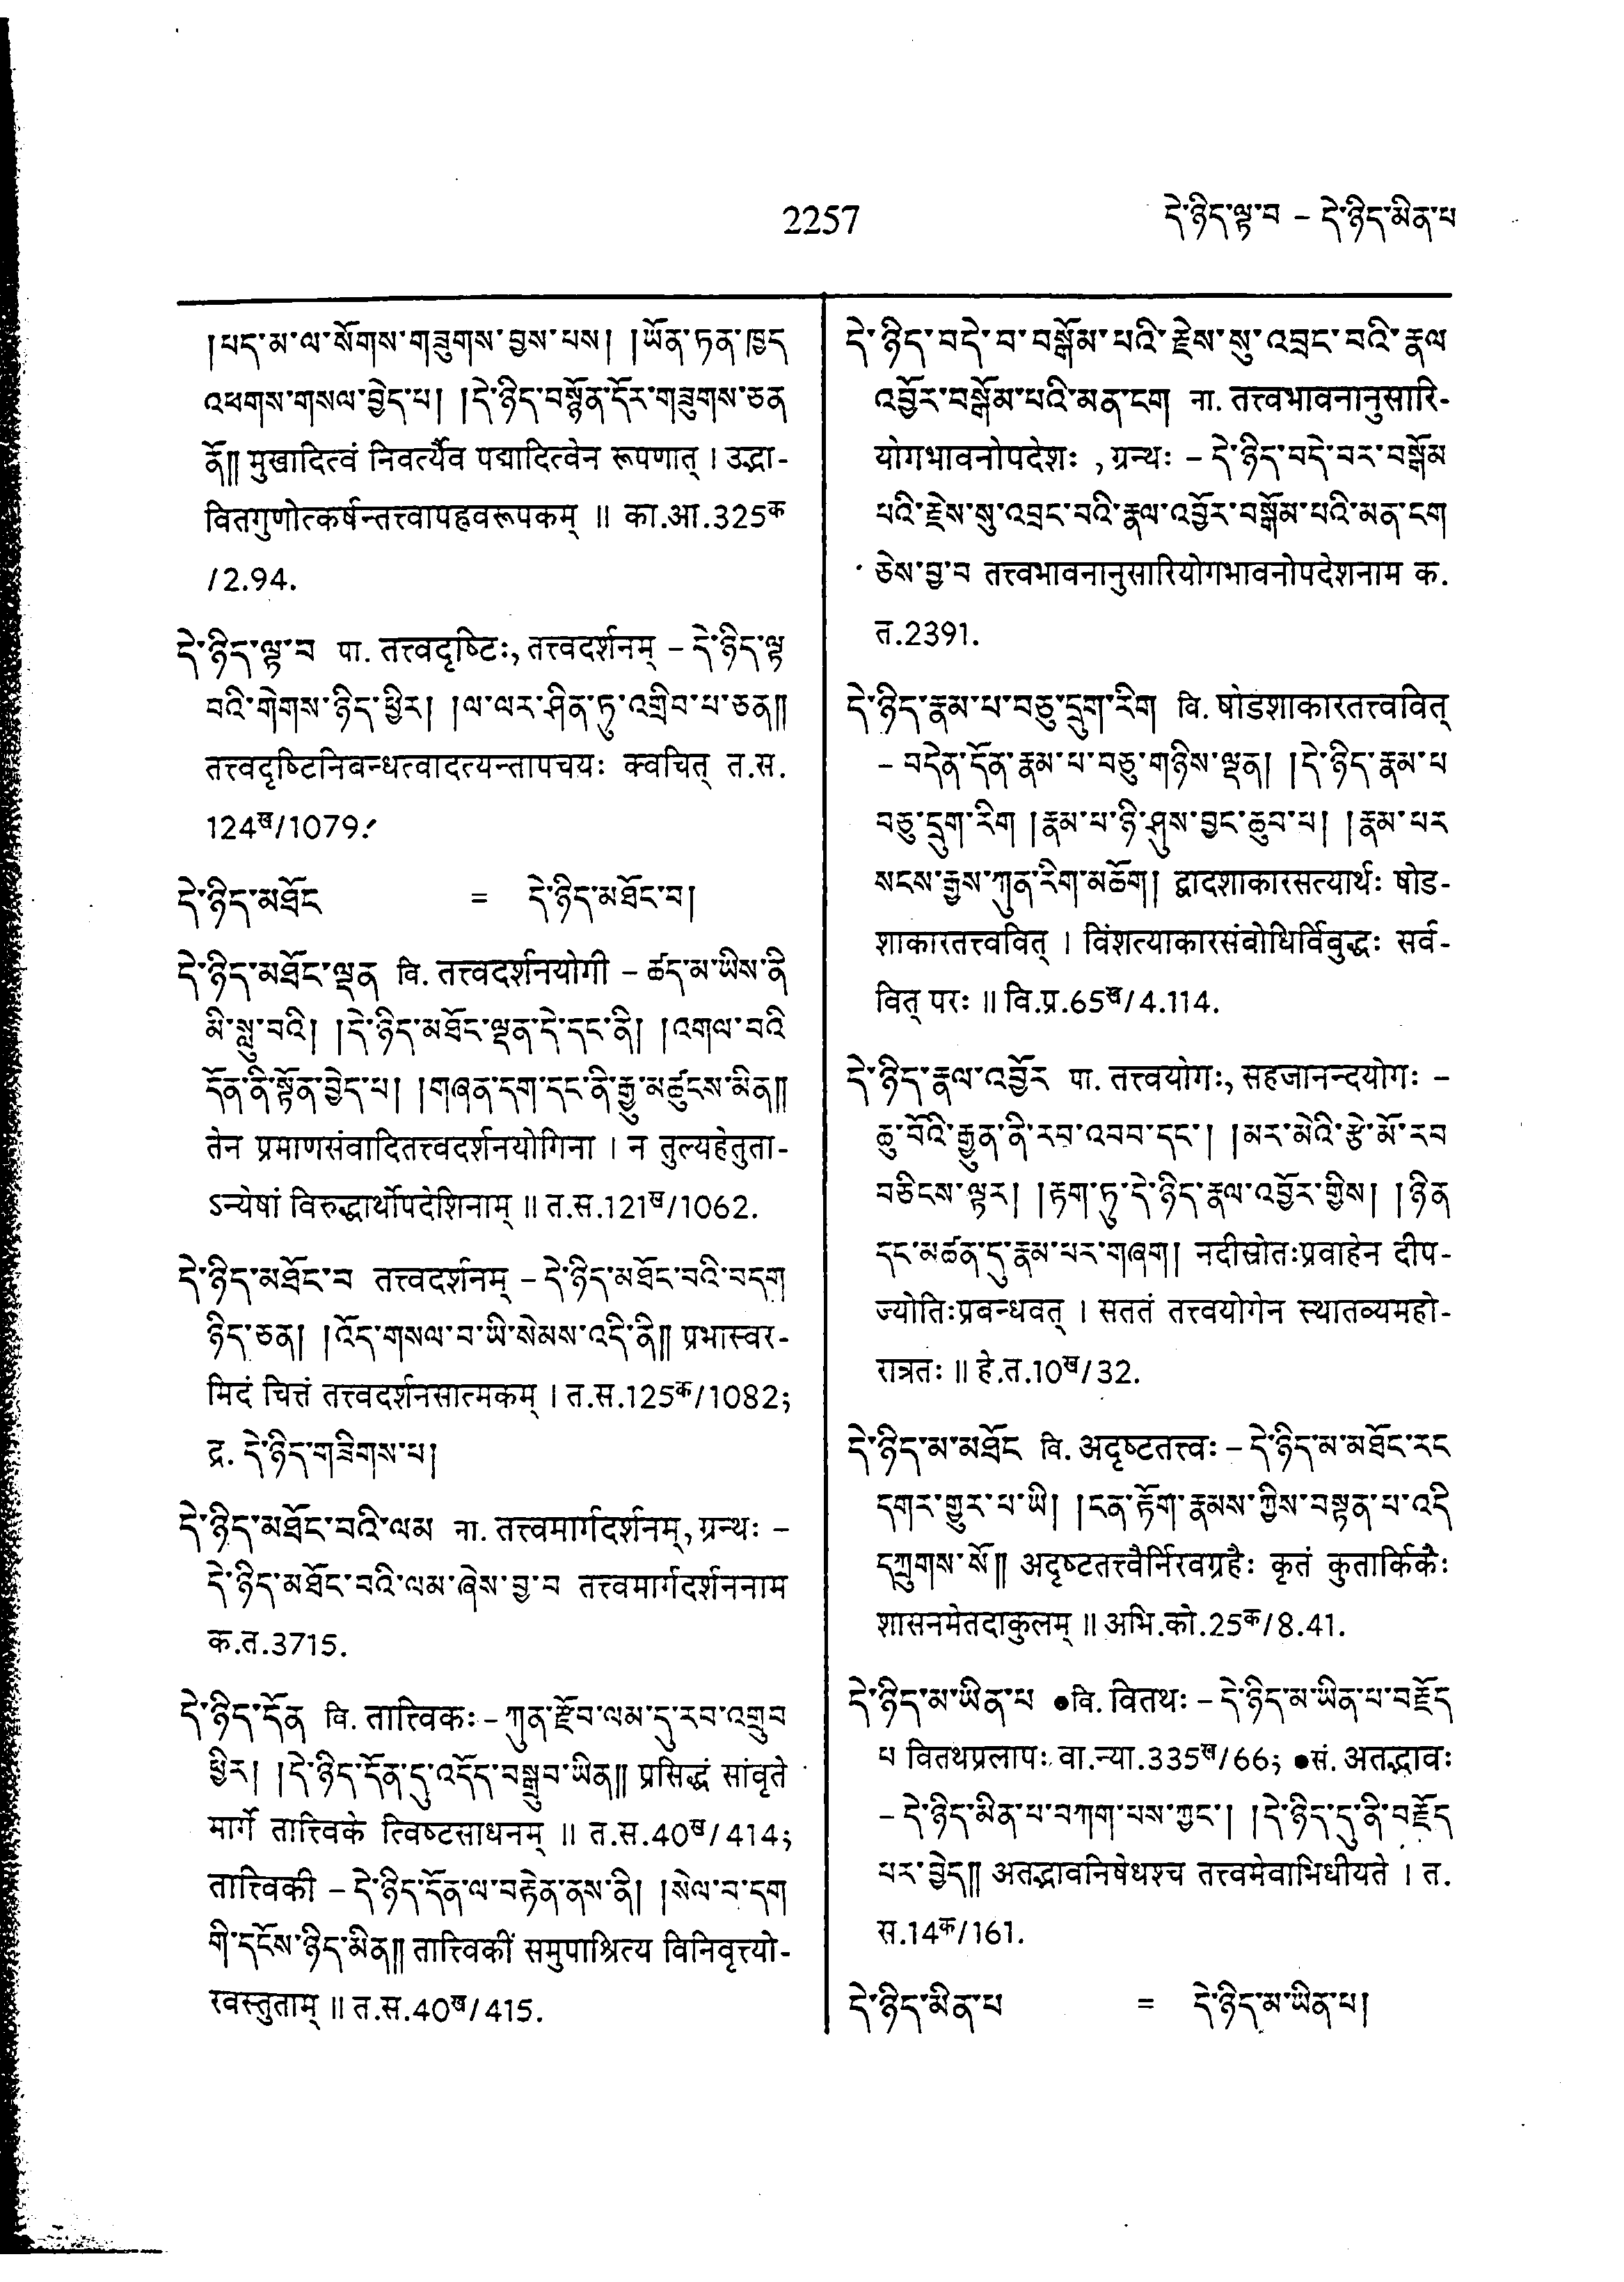 2257
དེ་ཉིད་ལྟ་བ – དེ་ཉིད་མིན་པ
།པད་མ་ལ་སོགས་གཟུགས་བྱས་པས། །ཡོན་ཏན་ཁྱད
འཕགས་གསལ་བྱེད་པ། །དེ་ཉིད་བསྙོན་དོར་གཟུགས་ཅན
ནོ༎ मुखादित्वं निवर्त्यैव पद्मादित्वेन रूपणात् । उद्भा-
वितगुणोत्कर्षन्तत्त्वापह्नवरूपकम् ॥ का.आ.325क
/2.94.
དེ་ཉིད་ལྟ་བ पा. तत्त्वदृष्टिः, तत्त्वदर्शनम् – དེ་ཉིད་ལྟ
བའི་གེགས་ཉིད་ཕྱིར། །ལ་ལར་ཤིན་ཏུ་འགྲིབ་པ་ཅན༎
तत्त्वदृष्टिनिबन्धत्वादत्यन्तापचयः क्वचित् त.स.
124ख/1079.
དེ་ཉིད་མཐོང = དེ་ཉིད་མཐོང་བ།
དེ་ཉིད་མཐོང་ལྡན वि. तत्त्वदर्शनयोगी – ཚད་མ་ཡིས་ནི
མི་སླུ་བའི། །དེ་ཉིད་མཐོང་ལྡན་དེ་དང་ནི། །འགལ་བའི
དོན་ནི་སྟོན་བྱེད་པ། །གཞན་དག་དང་ནི་རྒྱུ་མཚུངས་མིན༎
तेन प्रमाणसंवादितत्त्वदर्शनयोगिना । न तुल्यहेतुता-
ऽन्येषां विरुद्धार्थोपदेशिनाम् ॥ त.स.121ख/1062.
དེ་ཉིད་མཐོང་བ तत्त्वदर्शनम् – དེ་ཉིད་མཐོང་བའི་བདག
ཉིད་ཅན། །འོད་གསལ་བ་ཡི་སེམས་འདི་ནི༎ प्रभास्वर-
मिदं चित्तं तत्त्वदर्शनसात्मकम् । त.स.125क/1082;
द्र. དེ་ཉིད་གཟིགས་པ།
དེ་ཉིད་མཐོང་བའི་ལམ ना. तत्त्वमार्गदर्शनम्, ग्रन्थः –
དེ་ཉིད་མཐོང་བའི་ལམ་ཞེས་བྱ་བ तत्त्वमार्गदर्शननाम
क.त.3715.
དེ་ཉིད་དོན वि. तात्त्विकः – ཀུན་རྫོབ་ལམ་དུ་རབ་འགྲུབ
ཕྱིར། །དེ་ཉིད་དོན་དུ་འདོད་བསྒྲུབ་ཡིན༎ प्रसिद्धं सांवृते
मार्गे तात्त्विके त्विष्टसाधनम् ॥ त.स.40ख/414;
तात्त्विकी – དེ་ཉིད་དོན་ལ་བརྟེན་ནས་ནི། །སེལ་བ་དག
གི་དངོས་ཉིད་མིན༎ तात्त्विकीं समुपाश्रित्य विनिवृत्त्यो-
रवस्तुताम् ॥ त.स.40ख/415.
དེ་ཉིད་བདེ་བ་བསྒོམ་པའི་རྗེས་སུ་འབྲང་བའི་རྣལ
འབྱོར་བསྒོམ་པའི་མན་ངག ना. तत्त्वभावनानुसारि-
योगभावनोपदेशः , ग्रन्थः – དེ་ཉིད་བདེ་བར་བསྒོམ
པའི་རྗེས་སུ་འབྲང་བའི་རྣལ་འབྱོར་བསྒོམ་པའི་མན་ངག
ཅེས་བྱ་བ तत्त्वभावनानुसारियोगभावनोपदेशनाम क.
त.2391.
དེ་ཉིད་རྣམ་པ་བཅུ་དྲུག་རིག वि. षोडशाकारतत्त्ववित्
– བདེན་དོན་རྣམ་པ་བཅུ་གཉིས་ལྡན། །དེ་ཉིད་རྣམ་པ
བཅུ་དྲུག་རིག །རྣམ་པ་ཉི་ཤུས་བྱང་ཆུབ་པ། །རྣམ་པར
སངས་རྒྱས་ཀུན་རིག་མཆོག། द्वादशाकारसत्यार्थः षोड-
शाकारतत्त्ववित् । विंशत्याकारसंबोधिर्विबुद्धः सर्व-
वित् परः ॥ वि.प्र.65ख/4.114.
དེ་ཉིད་རྣལ་འབྱོར पा. तत्त्वयोगः, सहजानन्दयोगः –
ཆུ་བོའི་རྒྱུན་ནི་རབ་འབབ་དང་། །མར་མེའི་རྩེ་མོ་རབ
བཅིངས་ལྟར། །རྟག་ཏུ་དེ་ཉིད་རྣལ་འབྱོར་གྱིས། །ཉིན
དང་མཚན་དུ་རྣམ་པར་གཞག། नदीस्रोतःप्रवाहेन दीप-
ज्योतिःप्रबन्धवत् । सततं तत्त्वयोगेन स्थातव्यमहो-
रात्रतः ॥ हे.त.10ख/32.
དེ་ཉིད་མ་མཐོང वि. अदृष्टतत्त्वः – དེ་ཉིད་མ་མཐོང་རང
དགར་གྱུར་པ་ཡི། །ངན་རྟོག་རྣམས་ཀྱིས་བསྟན་པ་འདི
དཀྲུགས་སོ༎ अदृष्टतत्त्वैर्निरवग्रहैः कृतं कुतार्किकैः
शासनमेतदाकुलम् ॥ अभि.को.25क/8.41.
དེ་ཉིད་མ་ཡིན་པ ●वि. वितथः – དེ་ཉིད་མ་ཡིན་པ་བརྗོད
པ वितथप्रलापः वा.न्या.335ख/66; ●सं. अतद्भावः
– དེ་ཉིད་མིན་པ་བཀག་པས་ཀྱང་། །དེ་ཉིད་དུ་ནི་བརྗོད
པར་བྱེད༎ अतद्भावनिषेधश्च तत्त्वमेवाभिधीयते । त.
स.14क/161.
དེ་ཉིད་མིན་པ = དེ་ཉིད་མ་ཡིན་པ།